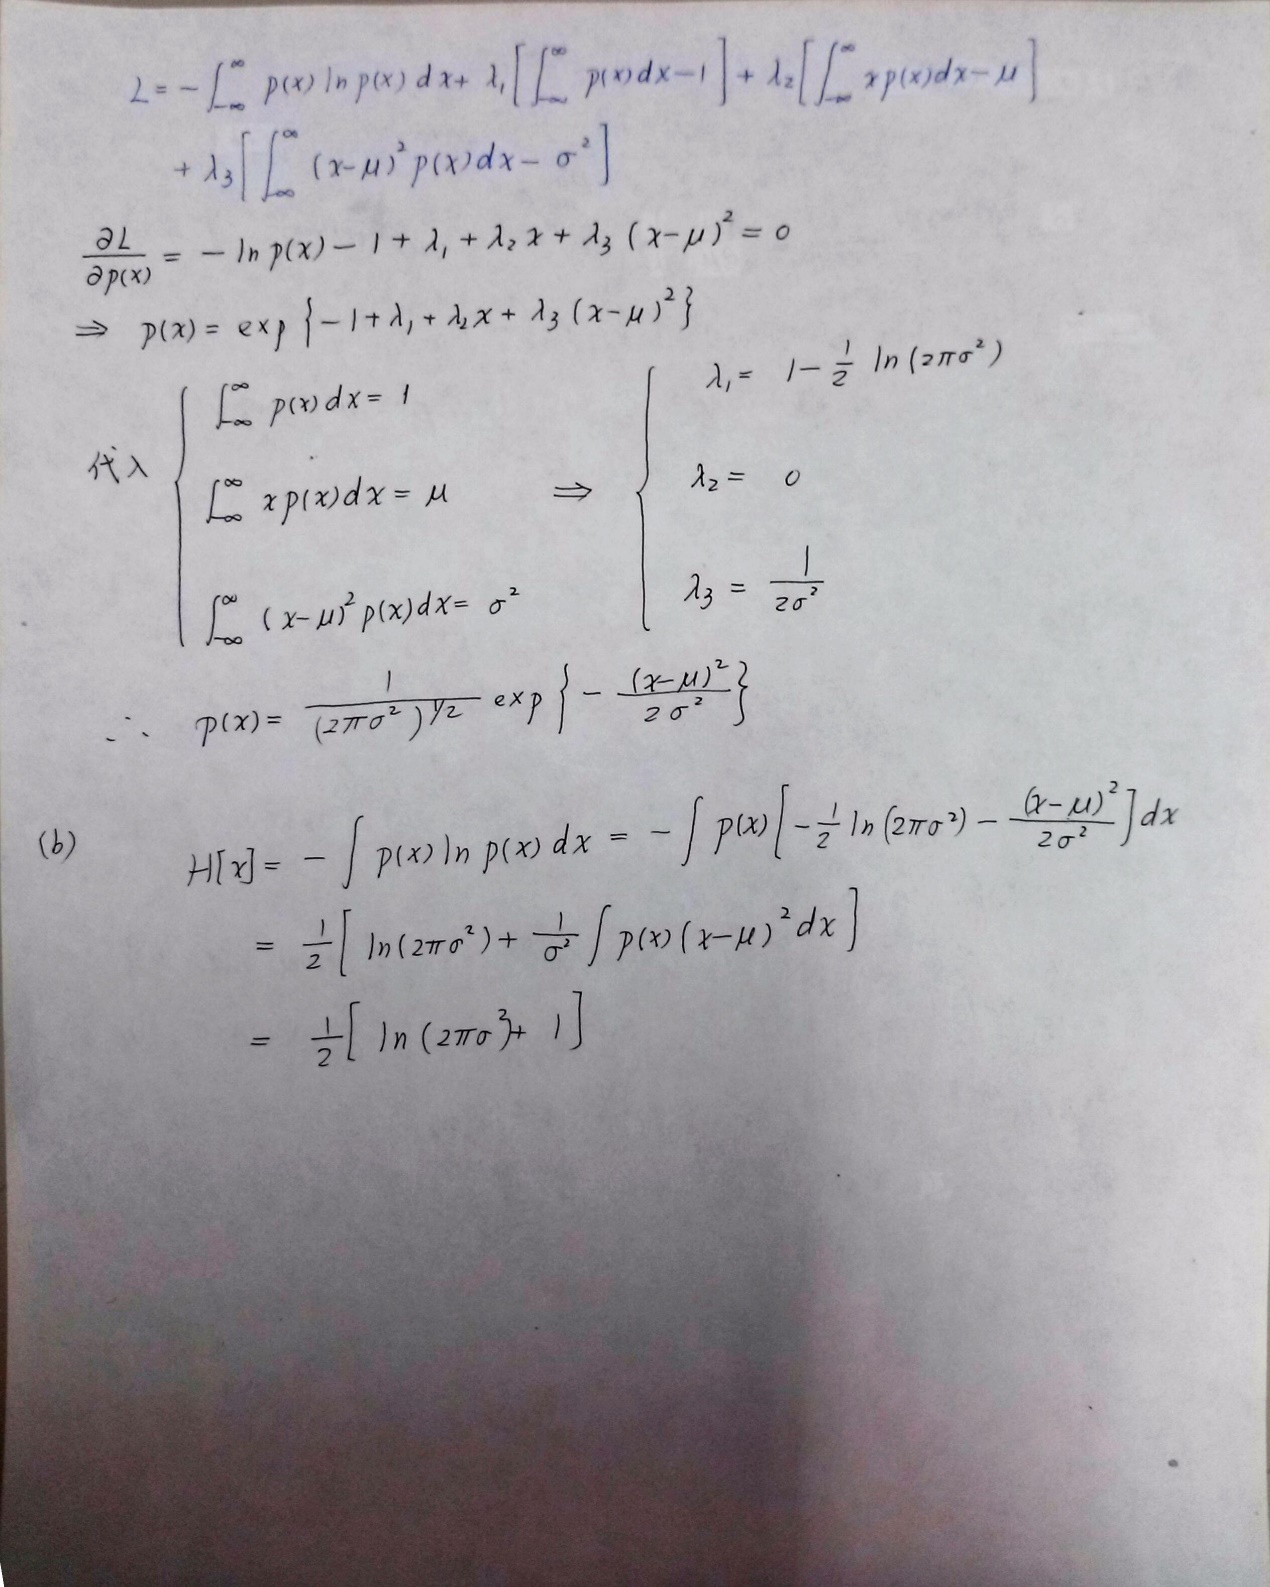 L = - ∫_{-∞}^{∞} p(x) ln p(x) dx + λ₁[∫_{-∞}^{∞} p(x)dx - 1] + λ₂[∫_{-∞}^{∞} x p(x)dx - μ]
+ λ₃[∫_{-∞}^{∞} (x-μ)² p(x)dx - σ²]
∂L/∂p(x) = - ln p(x) - 1 + λ₁ + λ₂ x + λ₃ (x-μ)² = 0
⇒ p(x) = exp {-1 + λ₁ + λ₂x + λ₃ (x-μ)²}
代入 { ∫_{-∞}^{∞} p(x)dx = 1
∫_{-∞}^{∞} x p(x)dx = μ
∫_{-∞}^{∞} (x-μ)² p(x)dx = σ²
⇒ { λ₁ = 1 - 1/2 ln(2πσ²)
λ₂ = 0
λ₃ = 1/2σ²
∴ p(x) = 1/(2πσ²)^{1/2} exp {- (x-μ)²/2σ²}
(b) H[x] = - ∫ p(x) ln p(x) dx = - ∫ p(x)[-1/2 ln(2πσ²) - (x-μ)²/2σ²]dx
= 1/2[ln(2πσ²) + 1/σ² ∫ p(x)(x-μ)² dx]
= 1/2[ln(2πσ²) + 1]